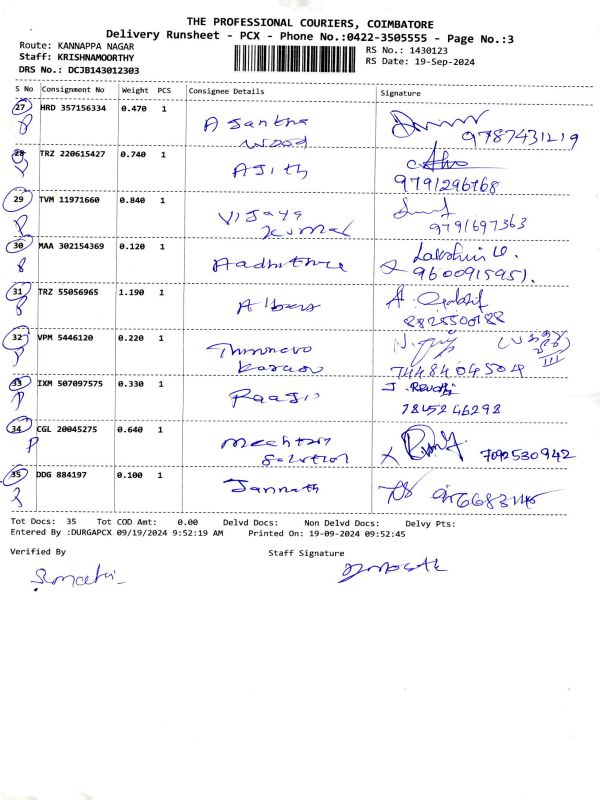 THE PROFESSIONAL COURIERS, COIMBATORE
Delivery Runsheet - PCX - Phone No.:0422-3505555 - Page No.:3
Route: KANNAPPA NAGAR
RS No.: 1430123
Staff: KRISHNAMOORTHY
RS Date: 19-Sep-2024
DRS No.: DCJB143012303
S No Consignment No Weight PCS Consignee Details Signature
27 HRD 357156334 0.470 1 A Santhe
Wood 9787431219
28 TRZ 220615427 0.740 1 AJith
9791296768
29 TVM 11971660 0.840 1 Vijaya
Kumar 9791697363
30 MAA 302154369 0.120 1 Aadhithya Lakshmi
9600915951.
31 TRZ 55056965 1.190 1 Albers
32 VPM 5446120 0.220 1
7448404504
33 IXM 507097575 0.330 1 Raaji J. Revathi
7845246298
34 CGL 20045275 0.640 1
Solution 7092530942
35 DDG 884197 0.100 1 Jannath
Tot Docs: 35 Tot COD Amt: 0.00 Delvd Docs: Non Delvd Docs: Delvy Pts:
Entered By :DURGAPCX 09/19/2024 9:52:19 AM Printed On: 19-09-2024 09:52:45
Verified By Staff Signature